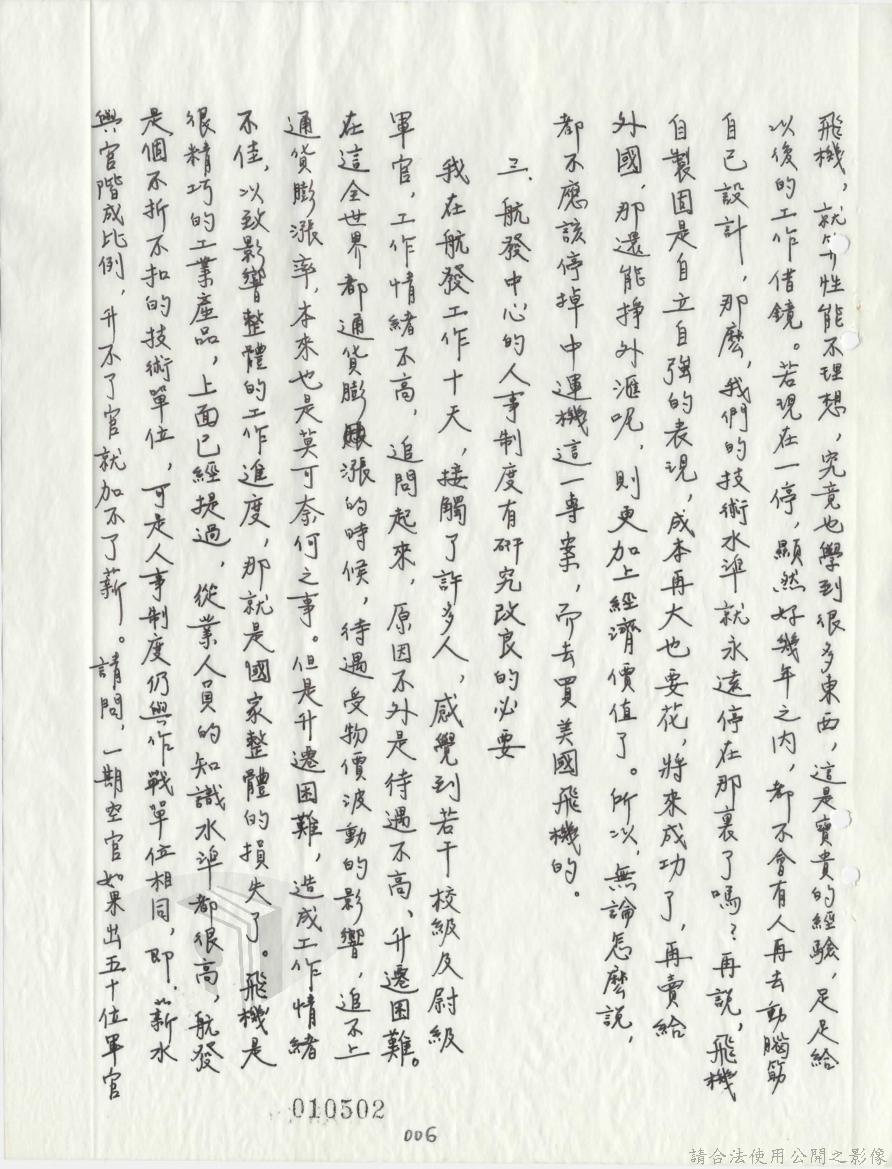 飛機，就算性能不理想，究竟也學到很多東西，這是寶貴的經驗，足足給
以後的工作借鏡。若現在一停，顯然好幾年之內，都不會有人再去動腦筋
自己設計，那麼，我們的技術水準就永遠停在那裏了嗎？再說，飛機
自製固是自立自強的表現，成本再大也要花，將來成功了，再賣給
外國，那還能掙外滙呢，則更加上經濟價值了。所以，無論怎麼說，
都不應該停掉中運機這一專案，而去買美國飛機的。
三、航發中心的人事制度有研究改良的必要
我在航發工作十天，接觸了許多人，感覺到若干校級及尉級
軍官，工作情緒不高，追問起來，原因不外是待遇不高、升遷困難。
在這全世界都通貨膨漲的時候，待遇受物價波動的影響，追不上
通貨膨漲率，本來也是莫可奈何之事。但是升遷困難，造成工作情緒
不佳，以致影響整體的工作進度，那就是國家整體的損失了。飛機是
很精巧的工業產品，上面已經提過，從業人員的知識水準都很高，航發
是個不折不扣的技術單位，可是人事制度仍與作戰單位相同，即：薪水
與官階成比例，升不了官就加不了薪。請問，一期空官如果出五十位軍官
010502
006
請合法使用公開之影像